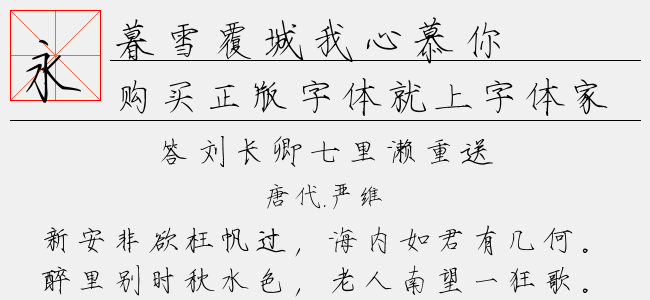 永
暮雪覆城我心慕你
购买正版字体就上字体家
答刘长卿七里濑重送
唐代.严维
新安非欲枉帆过，海内如君有几何。
醉里别时秋水色，老人南望一狂歌。